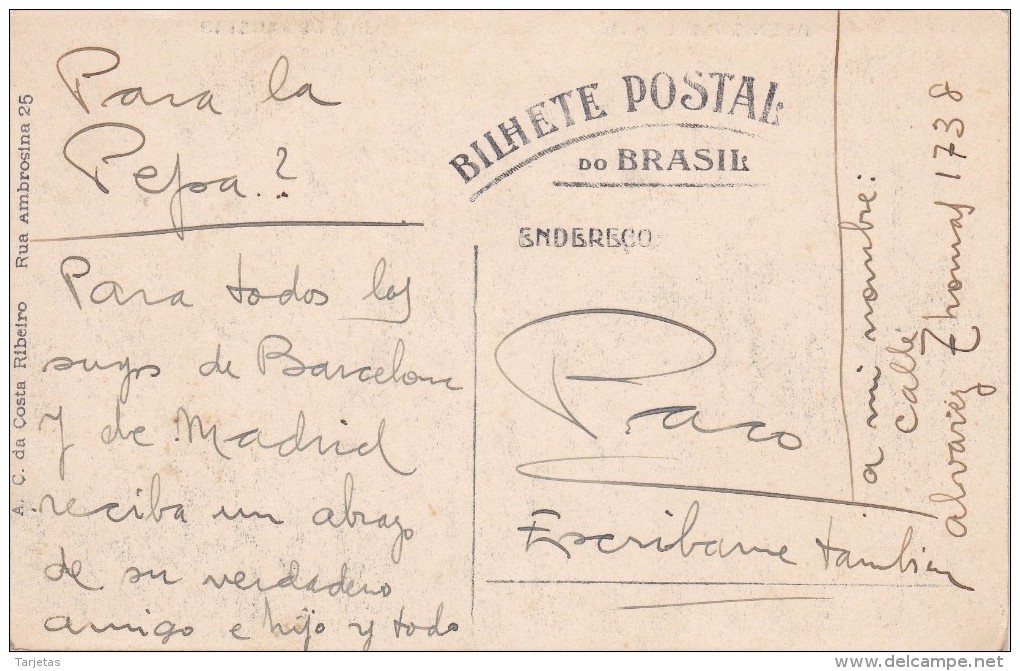 Para la
Pepa..?
Para todos los
suyos de Barcelona
Y de Madrid
reciba un abrazo
de su verdadero
amigo e hijo y todo
BILHETE POSTAL
DO BRASIL
ENDEREÇO
Paco
Escribame tambien
a mi nombre:
calle
alvarez Thomas 1738
A. C. da Costa Ribeiro Rua Ambrosina 25
Tarjetas
delcampe.net